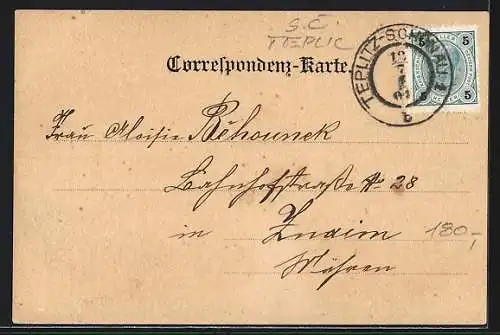 S.Č.
TTEPLIC
Correspondenz-Karte.
TEPLITZ-SCHÖNAU 1
12
7
b
5 5
5 5
Frau Aloisie Běhounek
Bahnhofstraße № 28
in Znaim
180,-
Mähren